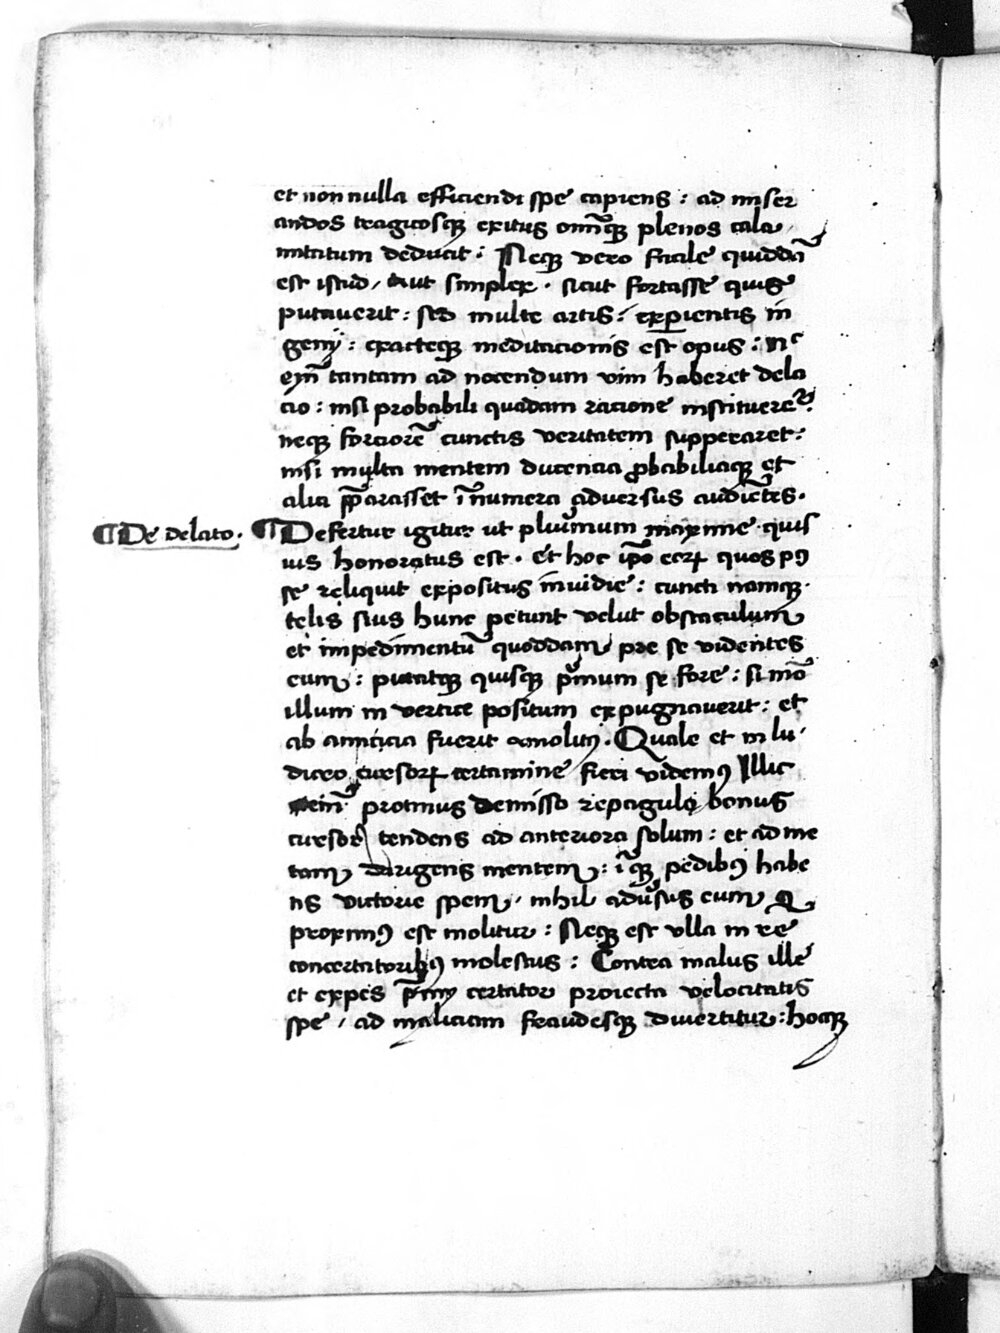 et non nulla efficiendi spe capiens : ad miser
andos tragicosq̨ exitus omĩq̨ plenos cala
mitatum deducit : Neq̨ vero facile quiddã
est istud / Aut simplex . sicut fortasse quis
putauerit : sed multe artis : exꝑientis in
genij : exacteq̨ meditacionis est opus : nᶜ
eĩm tantam ad nocendum vim haberet dela
cio : nisi probabili quadam racione instituereꝉ
neq̨ forciorẽ cunctis veritatem supperaret :
nisi multa mentem ducencia ꝓbabiliaq̨ et
alia p̃parasset ĩnumera aduersus audiẽtes .
¶ De delato .
¶ Defertur igitur ut plurimum maxime quis
uis honoratus est . et hoc ip̃o ceteꝝ quos pꝰ
se reliquit expositus inuidie : cuncti namq̨
telis suis hunc petunt velut obstaculum
et impedimentũ quoddam pre se videntes
eum : putatq̨ quisq̨ p̃mum se fore : si mõ
illum in vertice positum expugnauerit : et
ab amicicia fuerit amolitꝰ . Quale et in lu
dicro cursoꝝ certamine fieri videmꝰ Illic
eĩm protinus demisso repagulo bonus
cursor tendens ad anteriora solum : et ad me
tam dirigens mentem : ĩq̨ pedibꝰ habe
ns victorie spem / nihil adũsus eum q
proximꝰ est molitur : Neq̨ est vlla in re
concertatoribꝰ molestus : Contra malus ille
et expes p̃mij certator proiecta velocitatis
spe / ad maliciam fraudesq̨ diuertitur : hocq̨